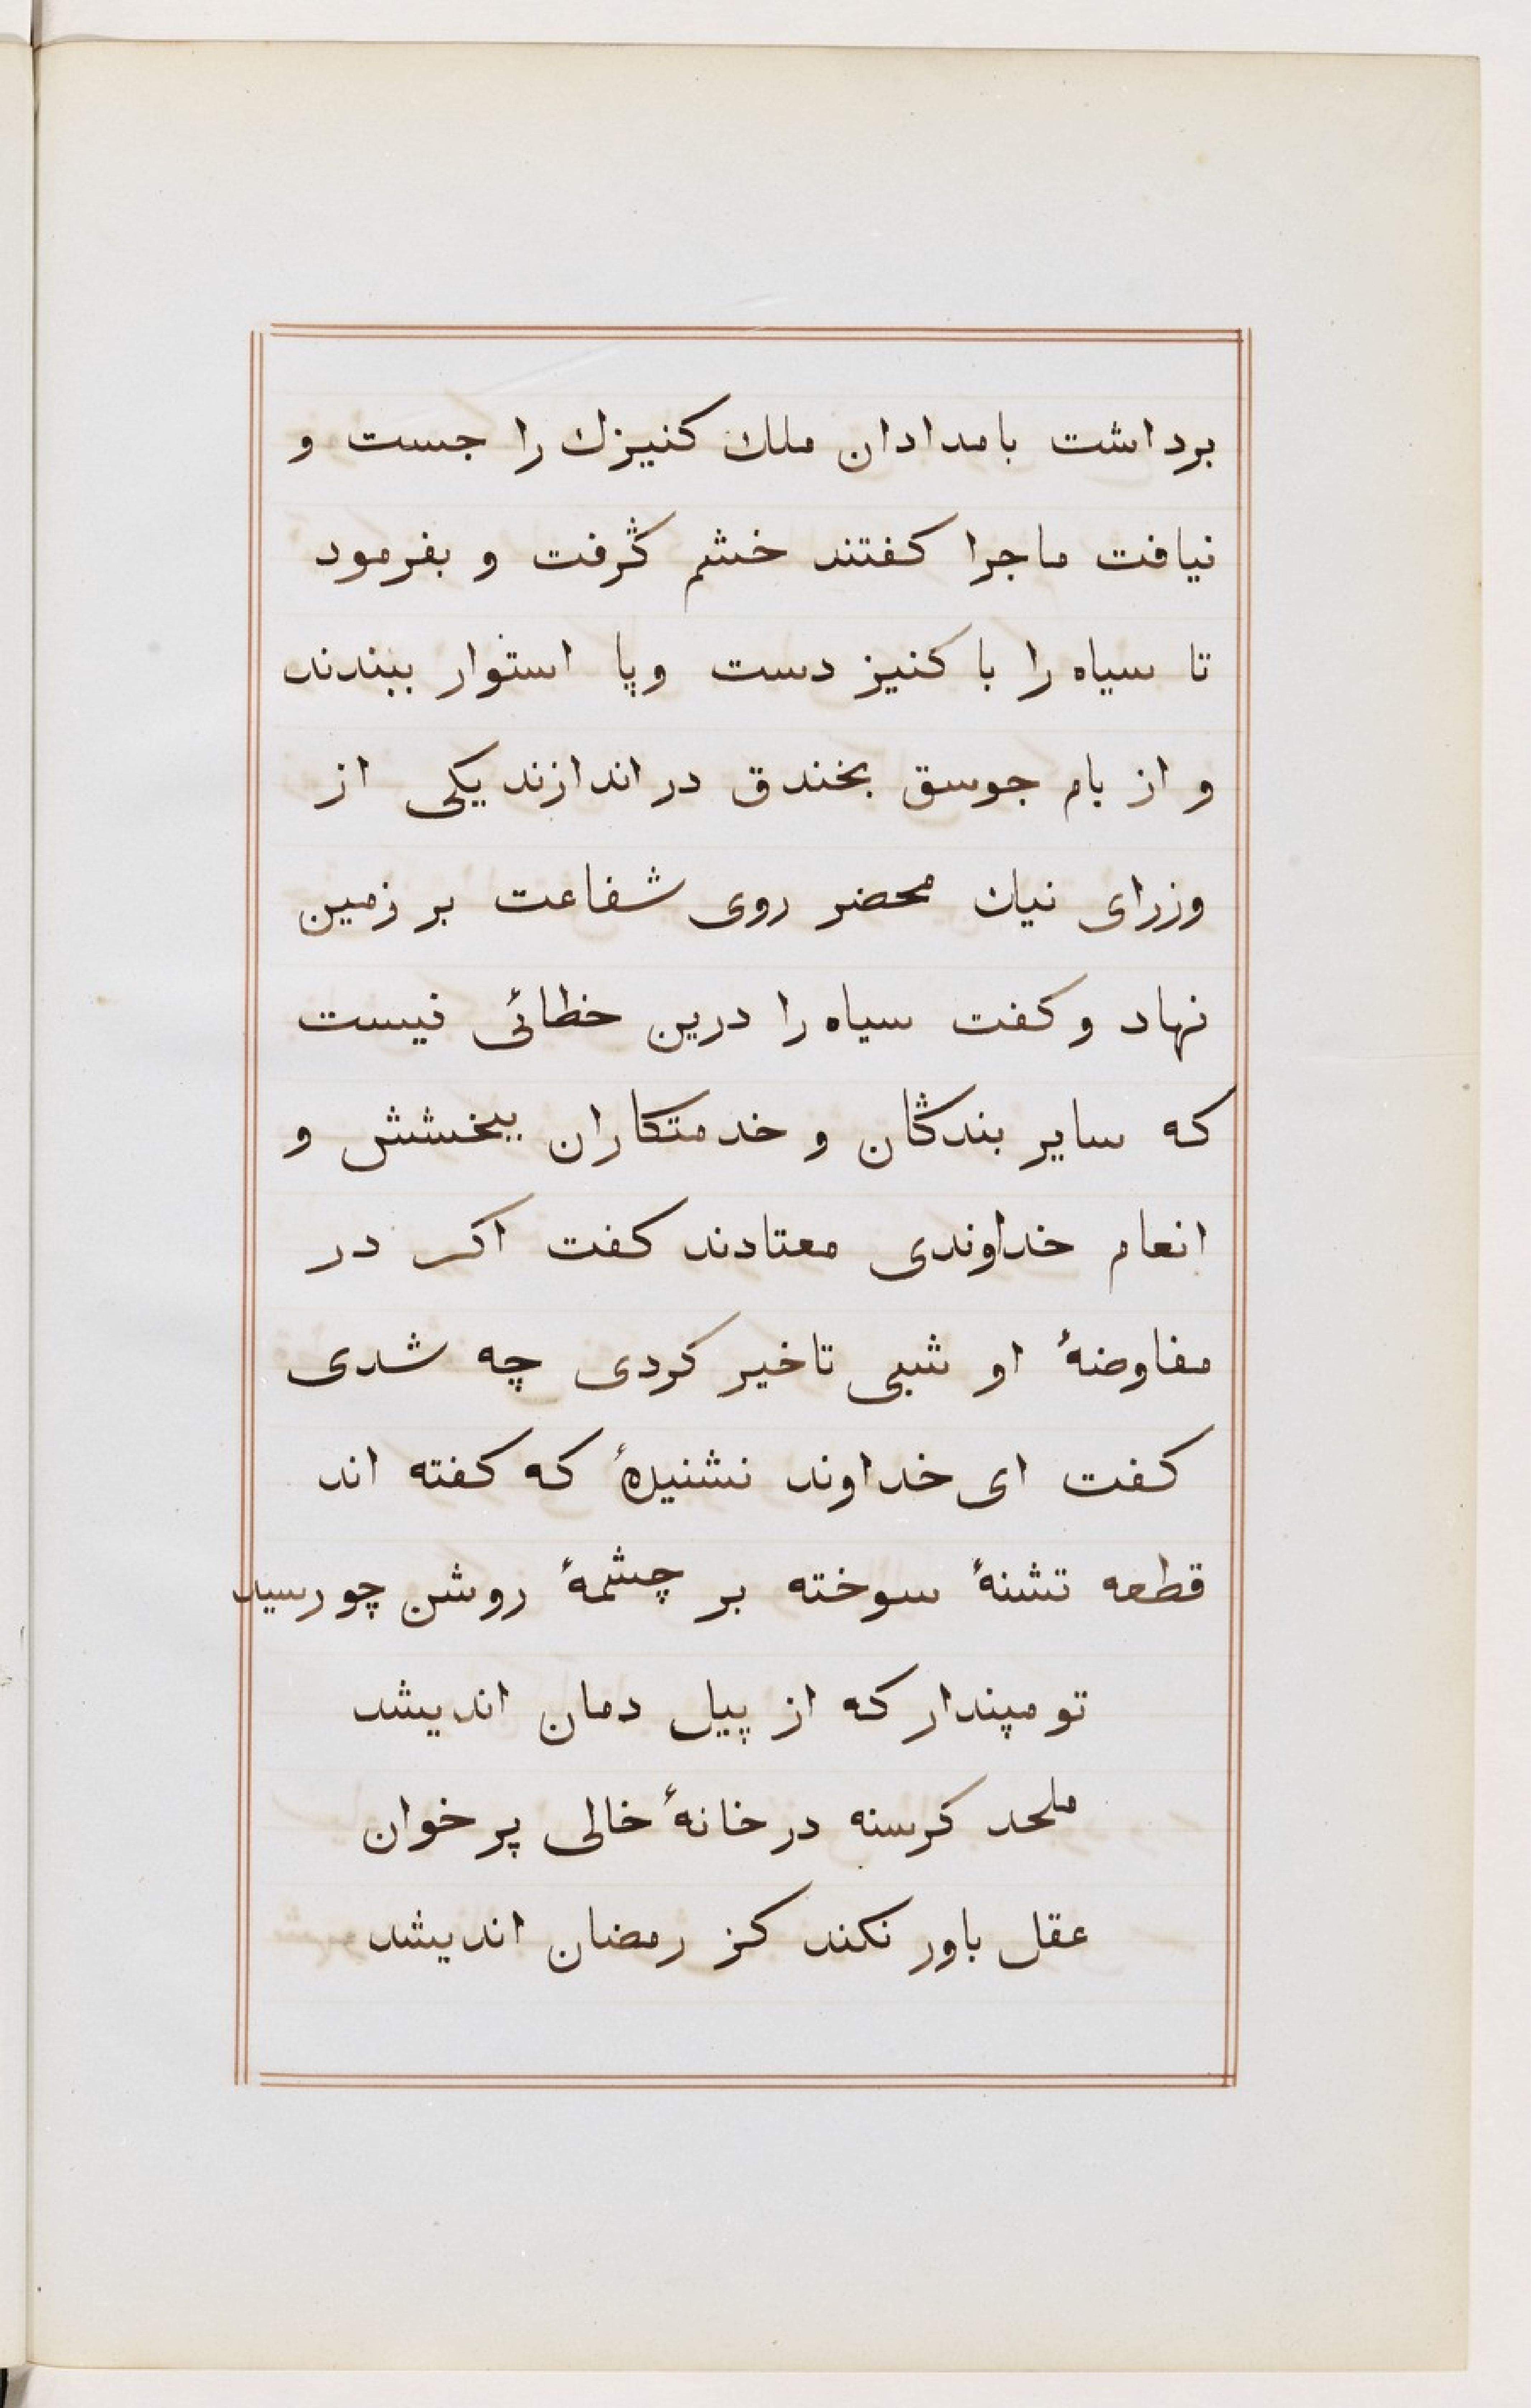 برداشت بامدادان ملك كنیزك را جست و
نیافت ماجرا كفتند خشم ݣرفت و بفرمود
تا سیاه را با كنیز دست وپا استوار ببندند
و از بام جوسق بخندق در اندازند یكی از
وزرای نیان محضر روی شفاعت بر زمین
نهاد و كفت سیاه را درین خطائی نیست
كه سایر بندݣان و خدمتكاران ببخشش و
انعام خداوندی معتادند كفت اكر در
مفاوضهٔ او شبی تاخیر كردی چه شدی
كفت ای خداوند نشنیدهٔ كه كفته اند
قطعه تشنهٔ سوخته بر چشمهٔ روشن چو رسید
تو مپندار كه از پیل دمان اندیشد
ملحد كرسنه در خانهٔ خالی پر خوان
عقل باور نكند كز رمضان اندیشد